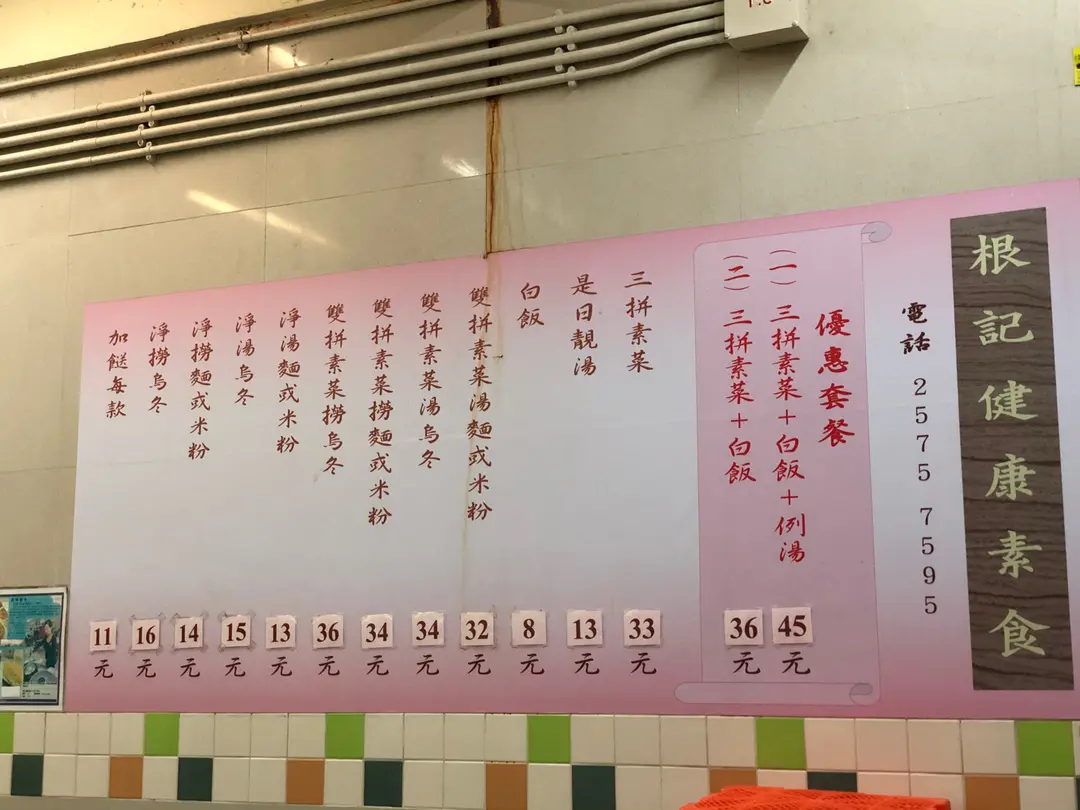 根記健康素食
電話 2575 7595
優惠套餐
(一) 三拼素菜+白飯+例湯 45元
(二) 三拼素菜+白飯 36元
三拼素菜 33元
是日靚湯 13元
白飯 8元
雙拼素菜湯麵或米粉 32元
雙拼素菜湯烏冬 34元
雙拼素菜撈麵或米粉 34元
雙拼素菜撈烏冬 36元
淨湯麵或米粉 13元
淨湯烏冬 15元
淨撈麵或米粉 14元
淨撈烏冬 16元
加餸每款 11元